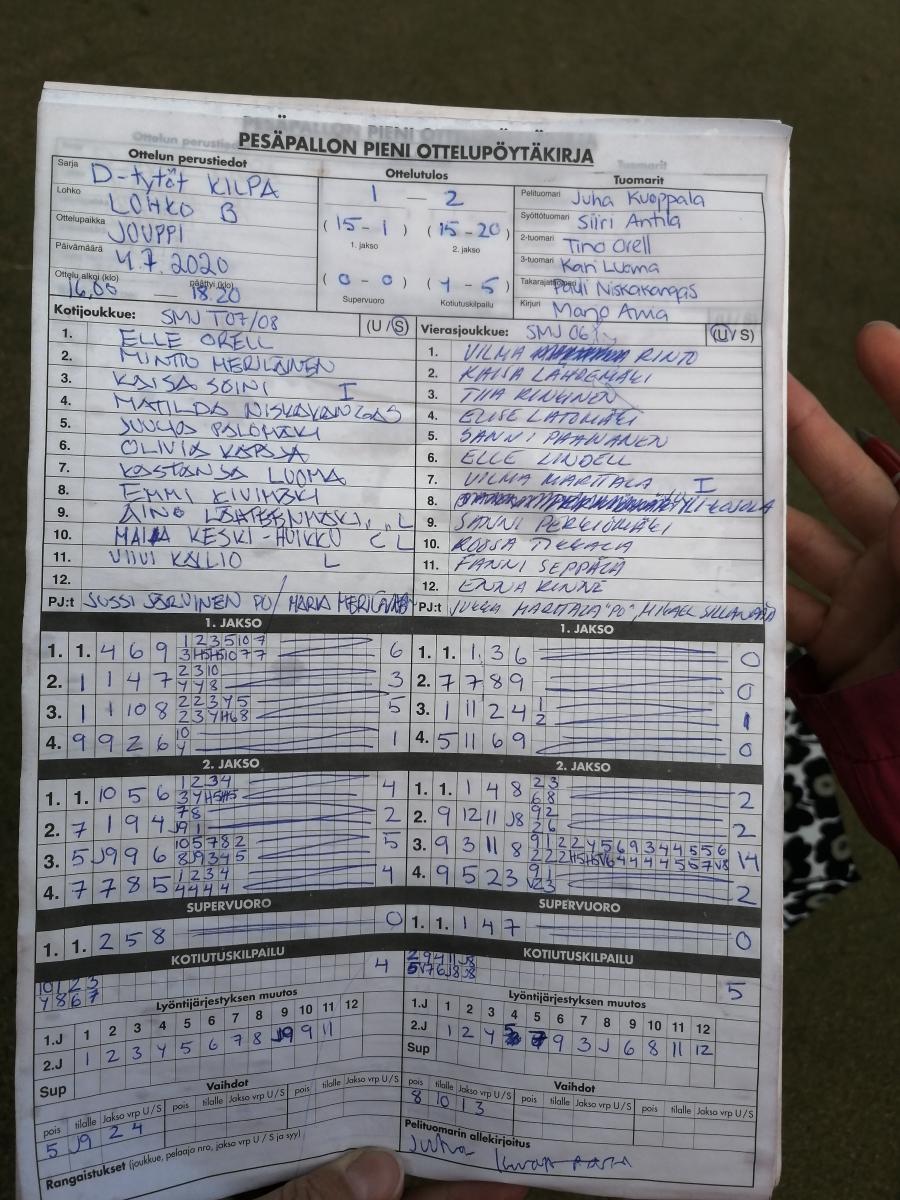 PESÄPALLON PIENI OTTELUPÖYTÄKIRJA
Ottelun perustiedot
Sarja D-tytöt KILPA
Lohko LOHKO B
Ottelupaikka JOUPPI
Päivämäärä 4.7.2020
Ottelu alkoi (klo) päättyi (klo)
16,05 — 18.20
Ottelutulos
1 — 2
(15-1) (15-20)
1. jakso 2. jakso
(0-0) (4-5)
Supervuoro Kotiutuskilpailu
Tuomarit
Pelituomari Juha Kuoppala
Syöttötuomari Siiri Antila
2-tuomari Tino Orell
3-tuomari Kari Luoma
Takarajatuomari Pauli Niskakangas
Kirjuri Marjo Ania
Kotijoukkue: SMJ T07/08 (U/S)
1. ELLE ORELL
2. MINTTU MERILÄINEN
3. KAISA SOINI I
4. MATILDA NISKAKANGAS
5. JUULIA PALOMÄKI
6. OLIVIA KARSSA
7. KASTANJA LUOMA
8. EMMI KIVIMÄKI
9. AINO LÄHTEENMÄKI L
10. MAIJA KESKI-HUIKKU L
11. VIIVI KALLIO L
12.
PJ:t JUSSI JÄRVINEN PJ / MARIA MERILÄINEN
Vierasjoukkue: SMJ 06 (U/S)
1. VILMA RINTO
2. KAISA LÄHDEMÄKI
3. TIIA RINKINEN
4. ELISE LATOMÄKI
5. SANNI PAANANEN
6. ELLE LINDELL
7. VILMA MARTTALA I
8.
9. SANNI PERKIÖMÄKI
10. ROOSA TIKKALA
11. FANNI SEPPÄLÄ
12. ENNA RINNE
PJ:t JUKKA MARTTALA "PJ", MIKAEL
1. JAKSO
1. 1. 4 6 9 1 2 3 5 10 7 6
2. 1 1 4 7 2 3 10 3
4 4 8
3. 1 1 10 8 2 2 3 4 5 5
4. 9 9 2 6 10 1
4
1. JAKSO
1. 1. 1. 3 6 0
2. 7 7 8 9 0
3. 1 11 2 4 1 1
2
4. 5 11 6 9 0
2. JAKSO
1. 1. 10 5 6 1 2 3 4 4
3 4 H5 H5
2. 7 1 9 4 7 8 2
J9 1
3. 5 J9 9 6 10 5 7 8 2 5
8 J9 3 4 5
4. 7 7 8 5 1 2 3 4 4
4 4 4 4
2. JAKSO
1. 1. 1 4 8 2 3 2
6 8
2. 9 12 11 J8 9 2 2
2 6
3. 9 3 11 8 9 1 2 2 4 5 6 9 3 4 4 5 5 6 14
4. 9 5 2 3 9 1 2
SUPERVUORO
1. 1. 2 5 8 0
SUPERVUORO
1. 1. 1 4 7 0
KOTIUTUSKILPAILU
10 1 2 3 4
4 8 6 7
KOTIUTUSKILPAILU
2 9 4 11 J8 5
Lyöntijärjestyksen muutos
1.J 1 2 3 4 5 6 7 8 9 10 11 12
2.J 1 2 3 4 5 6 7 8 J9 9 11
Sup
Lyöntijärjestyksen muutos
1.J 1 2 3 4 5 6 7 8 9 10 11 12
2.J 1 2 4 5 7 9 3 J 6 8 11 12
Sup
Vaihdot
pois tilalle Jakso vrp U/S pois tilalle Jakso vrp U/S pois tilalle Jakso vrp U/S
5 J9 2 4
Vaihdot
pois tilalle Jakso vrp U/S pois tilalle Jakso vrp U/S pois tilalle Jakso vrp U/S
8 10 1 3
Rangaistukset (joukkue, pelaaja nro, jakso vrp U/S ja syy)
Pelituomarin allekirjoitus
Juha Kuoppala